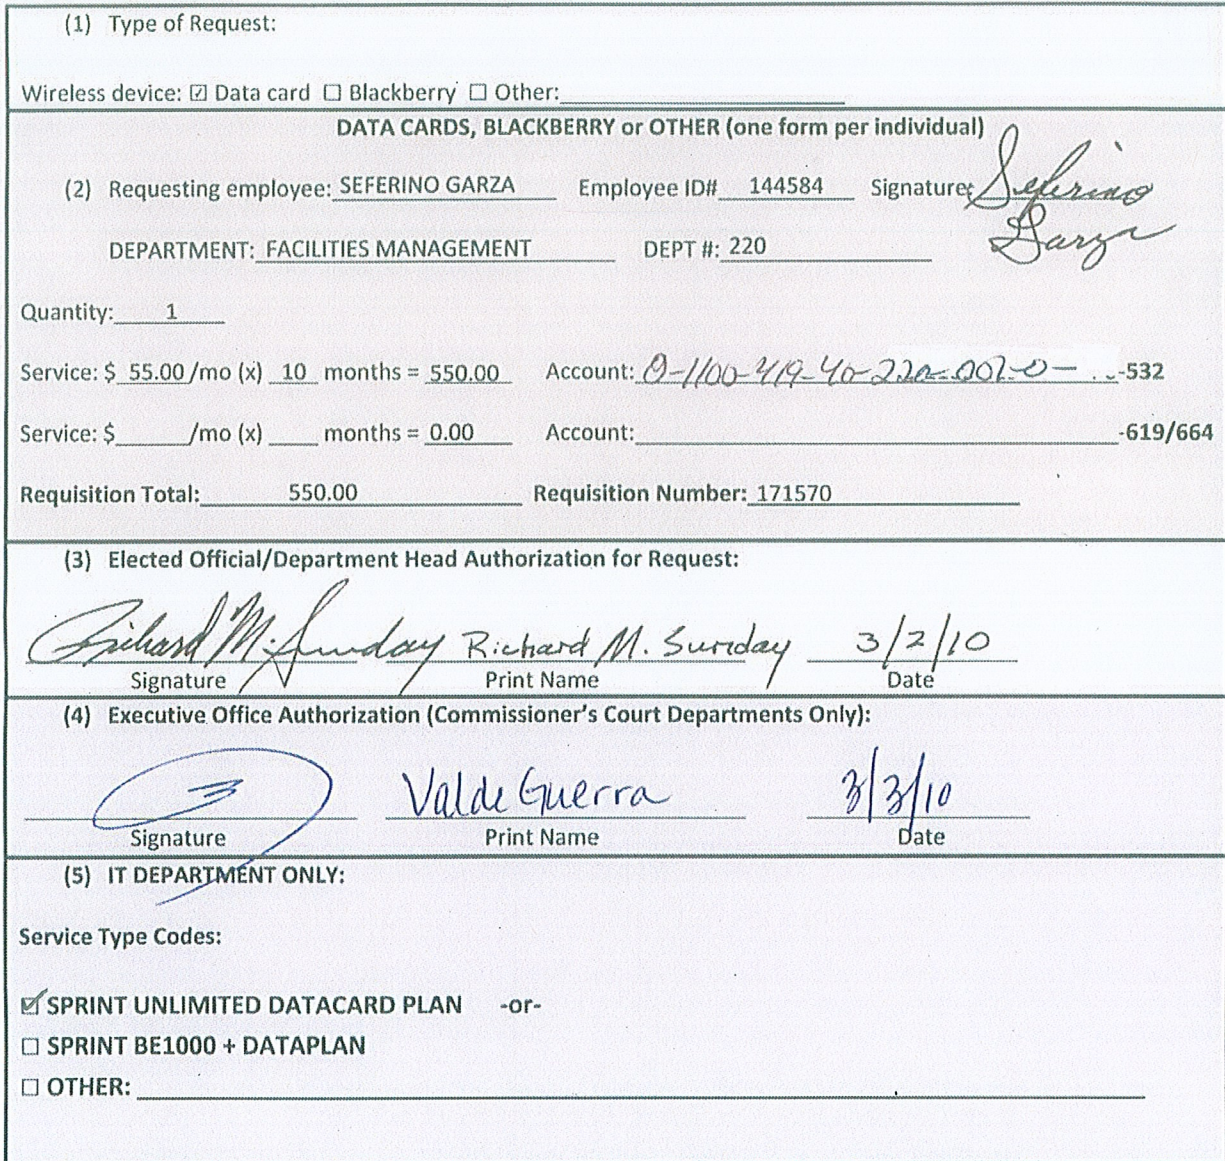 (1) Type of Request:
Wireless device: ☑ Data card ☐ Blackberry ☐ Other:
DATA CARDS, BLACKBERRY or OTHER (one form per individual)
(2) Requesting employee: SEFERINO GARZA Employee ID# 144584 Signature: Seferino Garza
DEPARTMENT: FACILITIES MANAGEMENT DEPT #: 220
Quantity: 1
Service: $ 55.00 /mo (x) 10 months = 550.00 Account: 0-1100-419-40-220-002-0- -532
Service: $ /mo (x) months = 0.00 Account: -619/664
Requisition Total: 550.00 Requisition Number: 171570
(3) Elected Official/Department Head Authorization for Request:
Richard M. Sunday Richard M. Sunday 3/2/10
Signature Print Name Date
(4) Executive Office Authorization (Commissioner's Court Departments Only):
Valde Guerra 3/3/10
Signature Print Name Date
(5) IT DEPARTMENT ONLY:
Service Type Codes:
☑ SPRINT UNLIMITED DATACARD PLAN -or-
☐ SPRINT BE1000 + DATAPLAN
☐ OTHER: